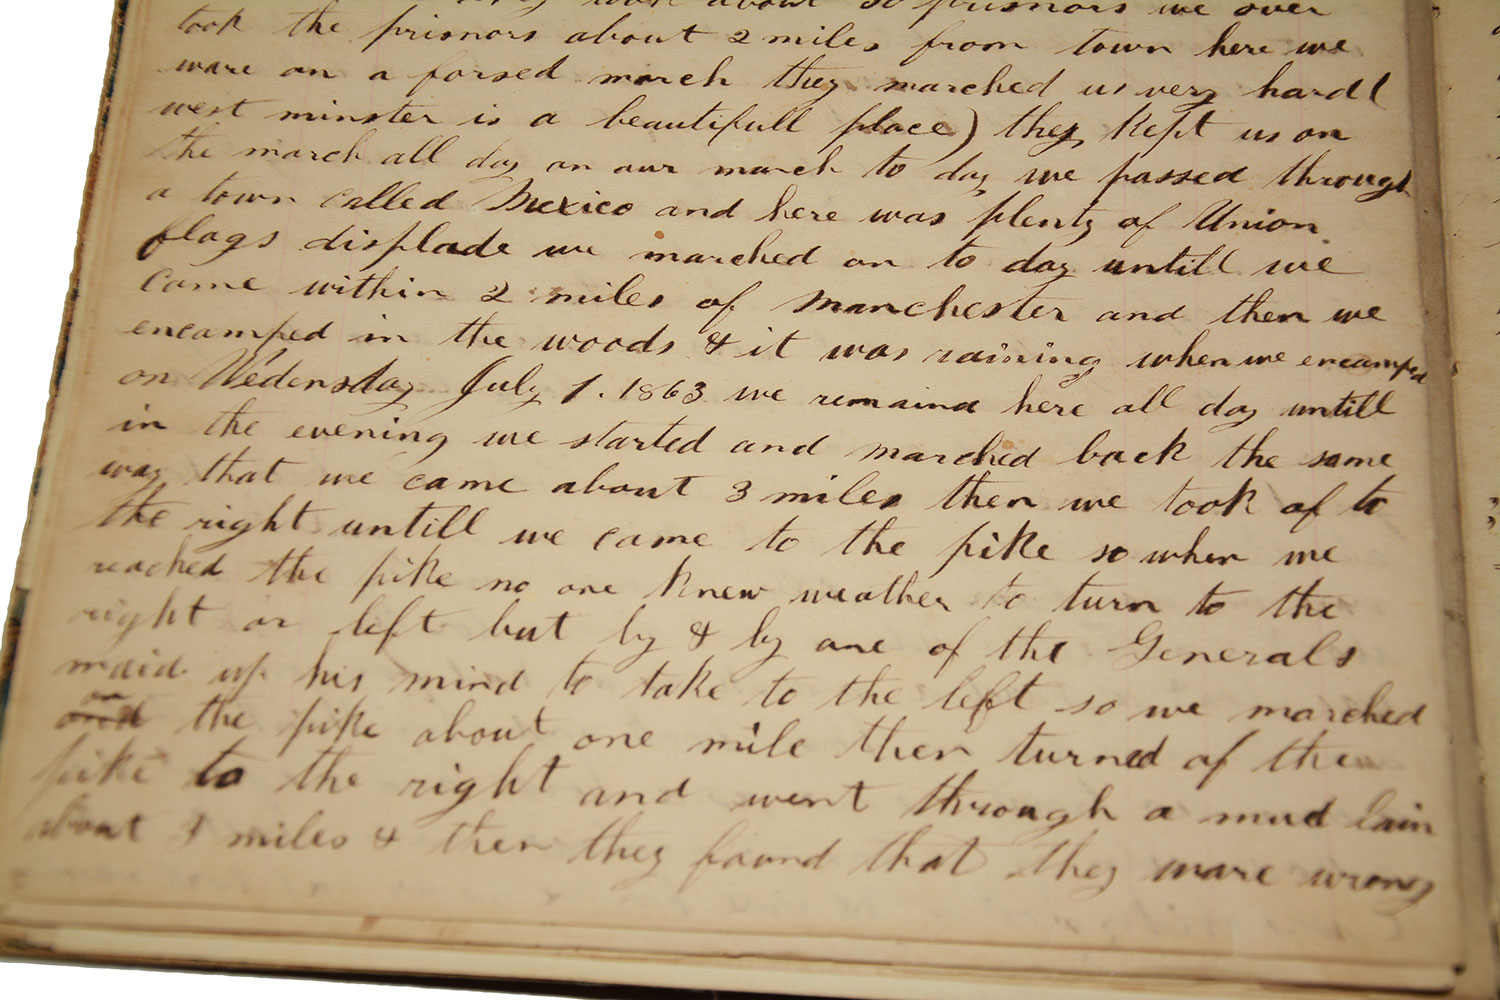 about 30 prisnors we over
took the prisnors about 2 miles from town here we
ware on a forsed march they marched us very hard (
west minster is a beautifull place) they kept us on
the march all day on our march to day we passed through
a town called Mexico and here was plenty of Union
flags displade we marched on to day untill we
came within 2 miles of Manchester and then we
encamped in the woods & it was raining when we encamped
on Wedensday July 1. 1863 we remaind here all day untill
in the evening we started and marched back the same
way that we came about 3 miles then we took of to
the right untill we came to the pike so when we
reached the pike no one knew weather to turn to the
right or left but by & by one of the Generals
maid up his mind to take to the left so we marched
on the pike about one mile then turned of the
pike to the right and went through a mud lain
about 3 miles & then they found that they ware wrong